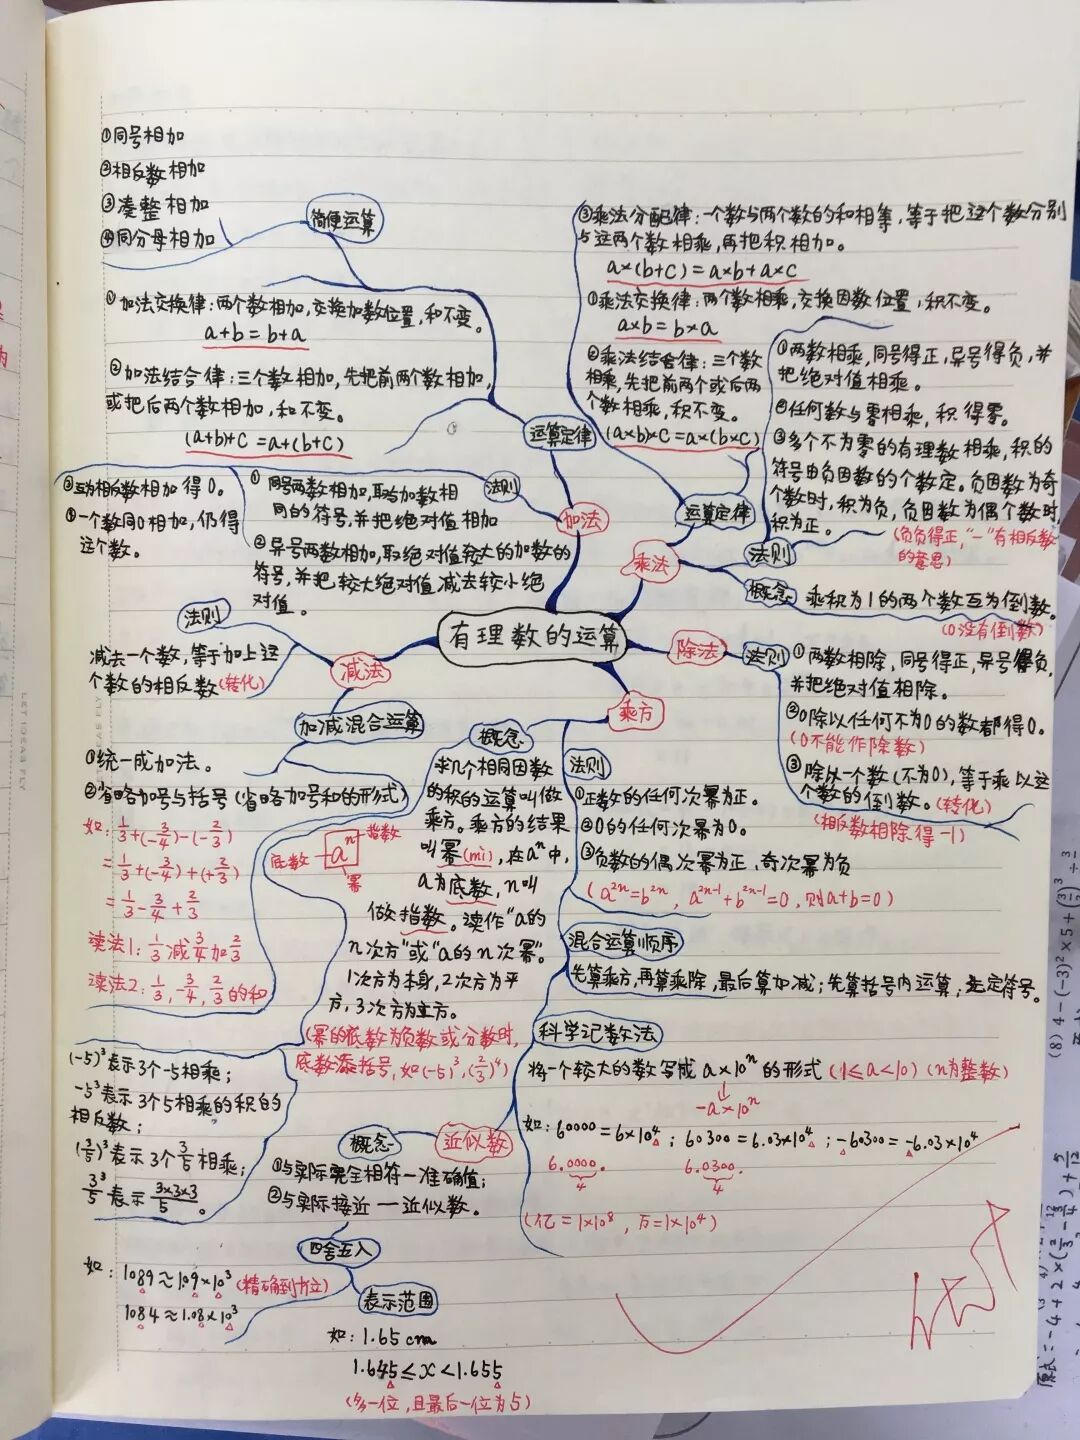 有理数的运算
加法
简便运算
①同号相加
②相反数相加
③凑整相加
④同分母相加
运算定律
①加法交换律:两个数相加,交换加数位置,和不变。
a+b=b+a
②加法结合律:三个数相加,先把前两个数相加,
或把后两个数相加,和不变。
(a+b)+c=a+(b+c)
法则
①同号两数相加,取与加数相
同的符号,并把绝对值相加
②异号两数相加,取绝对值较大的加数的
符号,并把较大绝对值减去较小绝
对值。
③互为相反数相加得0。
④一个数同0相加,仍得
这个数。
乘法
运算定律
③乘法分配律:一个数与两个数的和相等,等于把这个数分别
与这两个数相乘,再把积相加。
a×(b+c)=a×b+a×c
①乘法交换律:两个数相乘,交换因数位置,积不变。
a×b=b×a
②乘法结合律:三个数
相乘,先把前两个或后两
个数相乘,积不变。
(a×b)×c=a×(b×c)
法则
①两数相乘,同号得正,异号得负,并
把绝对值相乘。
②任何数与零相乘,积得零。
③多个不为零的有理数相乘,积的
符号由负因数的个数定。负因数为奇
个数时,积为负,负因数为偶个数时,
积为正。
(负负得正,“-”有相反数
的意思)
概念
乘积为1的两个数互为倒数。
(0没有倒数)
减法
法则
减去一个数,等于加上这
个数的相反数(转化)
加减混合运算
①统一成加法。
②省略加号与括号(省略加号和的形式)
如:1/3+(-3/4)-(-2/3)
=1/3+(-3/4)+(+2/3)
=1/3-3/4+2/3
读法1:1/3减3/4加2/3
读法2:1/3,-3/4,2/3的和
除法
法则
①两数相除,同号得正,异号得负,
并把绝对值相除。
②0除以任何不为0的数都得0。
(0不能作除数)
③除以一个数(不为0),等于乘以这
个数的倒数。(转化)
(相反数相除得-1)
乘方
概念
求几个相同因数
的积的运算叫做
乘方。乘方的结果
叫幂(mì),在aⁿ中,
a为底数,n叫
做指数。读作“a的
n次方”或“a的n次幂”。
1次方为本身,2次方为平
方,3次方为立方。
(幂的底数为负数或分数时,
底数添括号,如(-5)³,(2/3)⁴)
底数 aⁿ 指数
幂
(-5)³表示3个-5相乘;
-5³表示3个5相乘的积的
相反数;
(3/5)³表示3个3/5相乘;
3³/5表示3×3×3/5。
法则
①正数的任何次幂为正。
②0的任何次幂为0。
③负数的偶次幂为正,奇次幂为负
(a²ⁿ=b²ⁿ,a²ⁿ⁻¹+b²ⁿ⁻¹=0,则a+b=0)
混合运算顺序
先算乘方,再算乘除,最后算加减;先算括号内运算;先定符号。
科学记数法
将一个较大的数写成a×10ⁿ的形式(1≤a<10)(n为整数)
-a×10ⁿ
如:60000=6×10⁴;60300=6.03×10⁴;-60300=-6.03×10⁴
6.0000. 6.0300.
4 4
(亿=1×10⁸,万=1×10⁴)
近似数
概念
①与实际完全相符—准确值;
②与实际接近—近似数。
四舍五入
如:1089≈1.09×10³(精确到十位)
1084≈1.08×10³
表示范围
如:1.65cm
1.645≤x<1.655
(多一位,且最后一位为5)